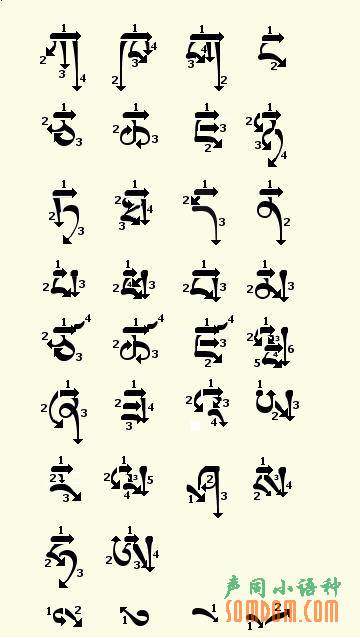 ཀ ཁ ག ང
ཅ ཆ ཇ ཉ
ཏ ཐ ད ན
པ ཕ བ མ
ཙ ཚ ཛ ཝ
ཞ ཟ འ ཡ
ར ལ ཤ ས
ཧ ཨ
ི ུ ེ ོ
声同小语种
SOMDOM.COM